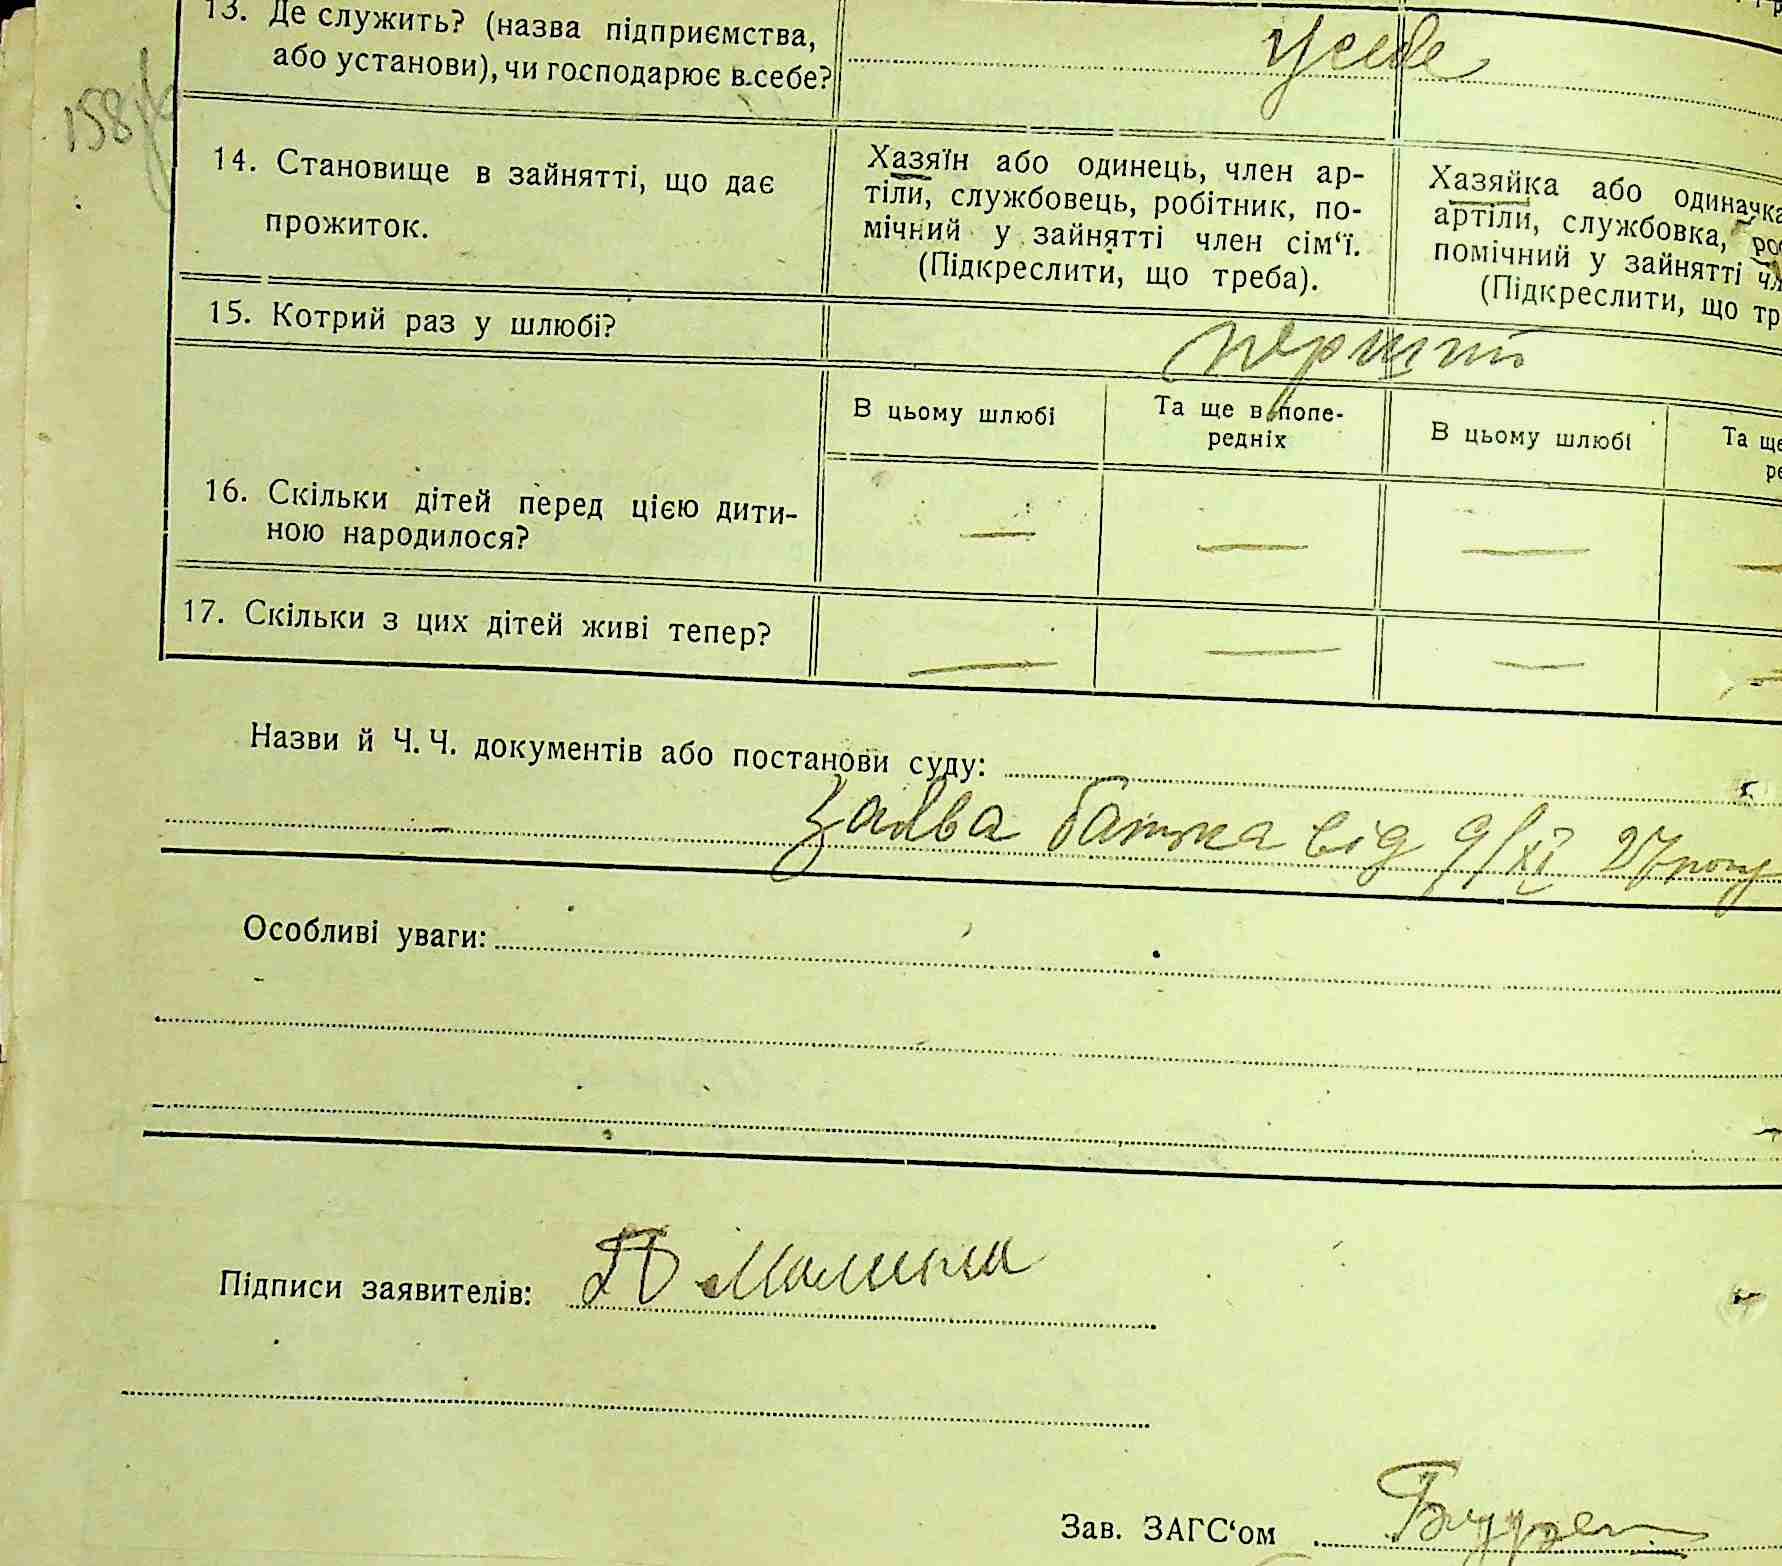 13. Де служить? (назва підприємства,
або установи), чи господарює в себе?
у себе
14. Становище в зайнятті, що дає
прожиток.
Хазяїн або одинець, член ар-
тіли, службовець, робітник, по-
мічний у зайнятті член сім‘ї.
(Підкреслити, що треба).
Хазяйка або одиначка
артіли, службовка, ро
помічний у зайнятті чл
(Підкреслити, що тр
15. Котрий раз у шлюбі?
перший
В цьому шлюбі
Та ще в попе-
редніх
В цьому шлюбі
Та ще
ре
16. Скільки дітей перед цією дити-
ною народилося?
— — — —
17. Скільки з цих дітей живі тепер?
— — — —
Назви й Ч. Ч. документів або постанови суду:
Заява батька від 9/XI 27 року
Особливі уваги:
Підписи заявителів: П Малина
Зав. ЗАГС‘ом